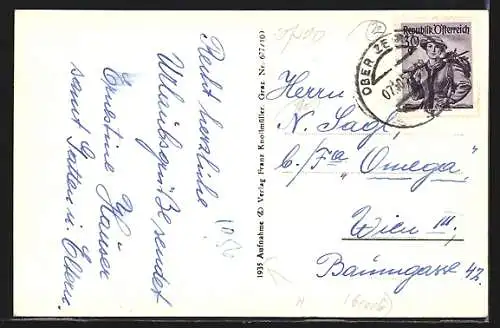 Recht herzliche
Urlaubsgrüße sendet
Ernestine Häuser
samt Gatten u. Eltern.
1935 Aufnahme (K) Verlag Franz Knollmüller, Graz Nr. 677/109
Republik Österreich
30
OBER ZE
Herrn
N. Sagl,
b/Fa „Omega"
Wien III,
Baumgasse 42.